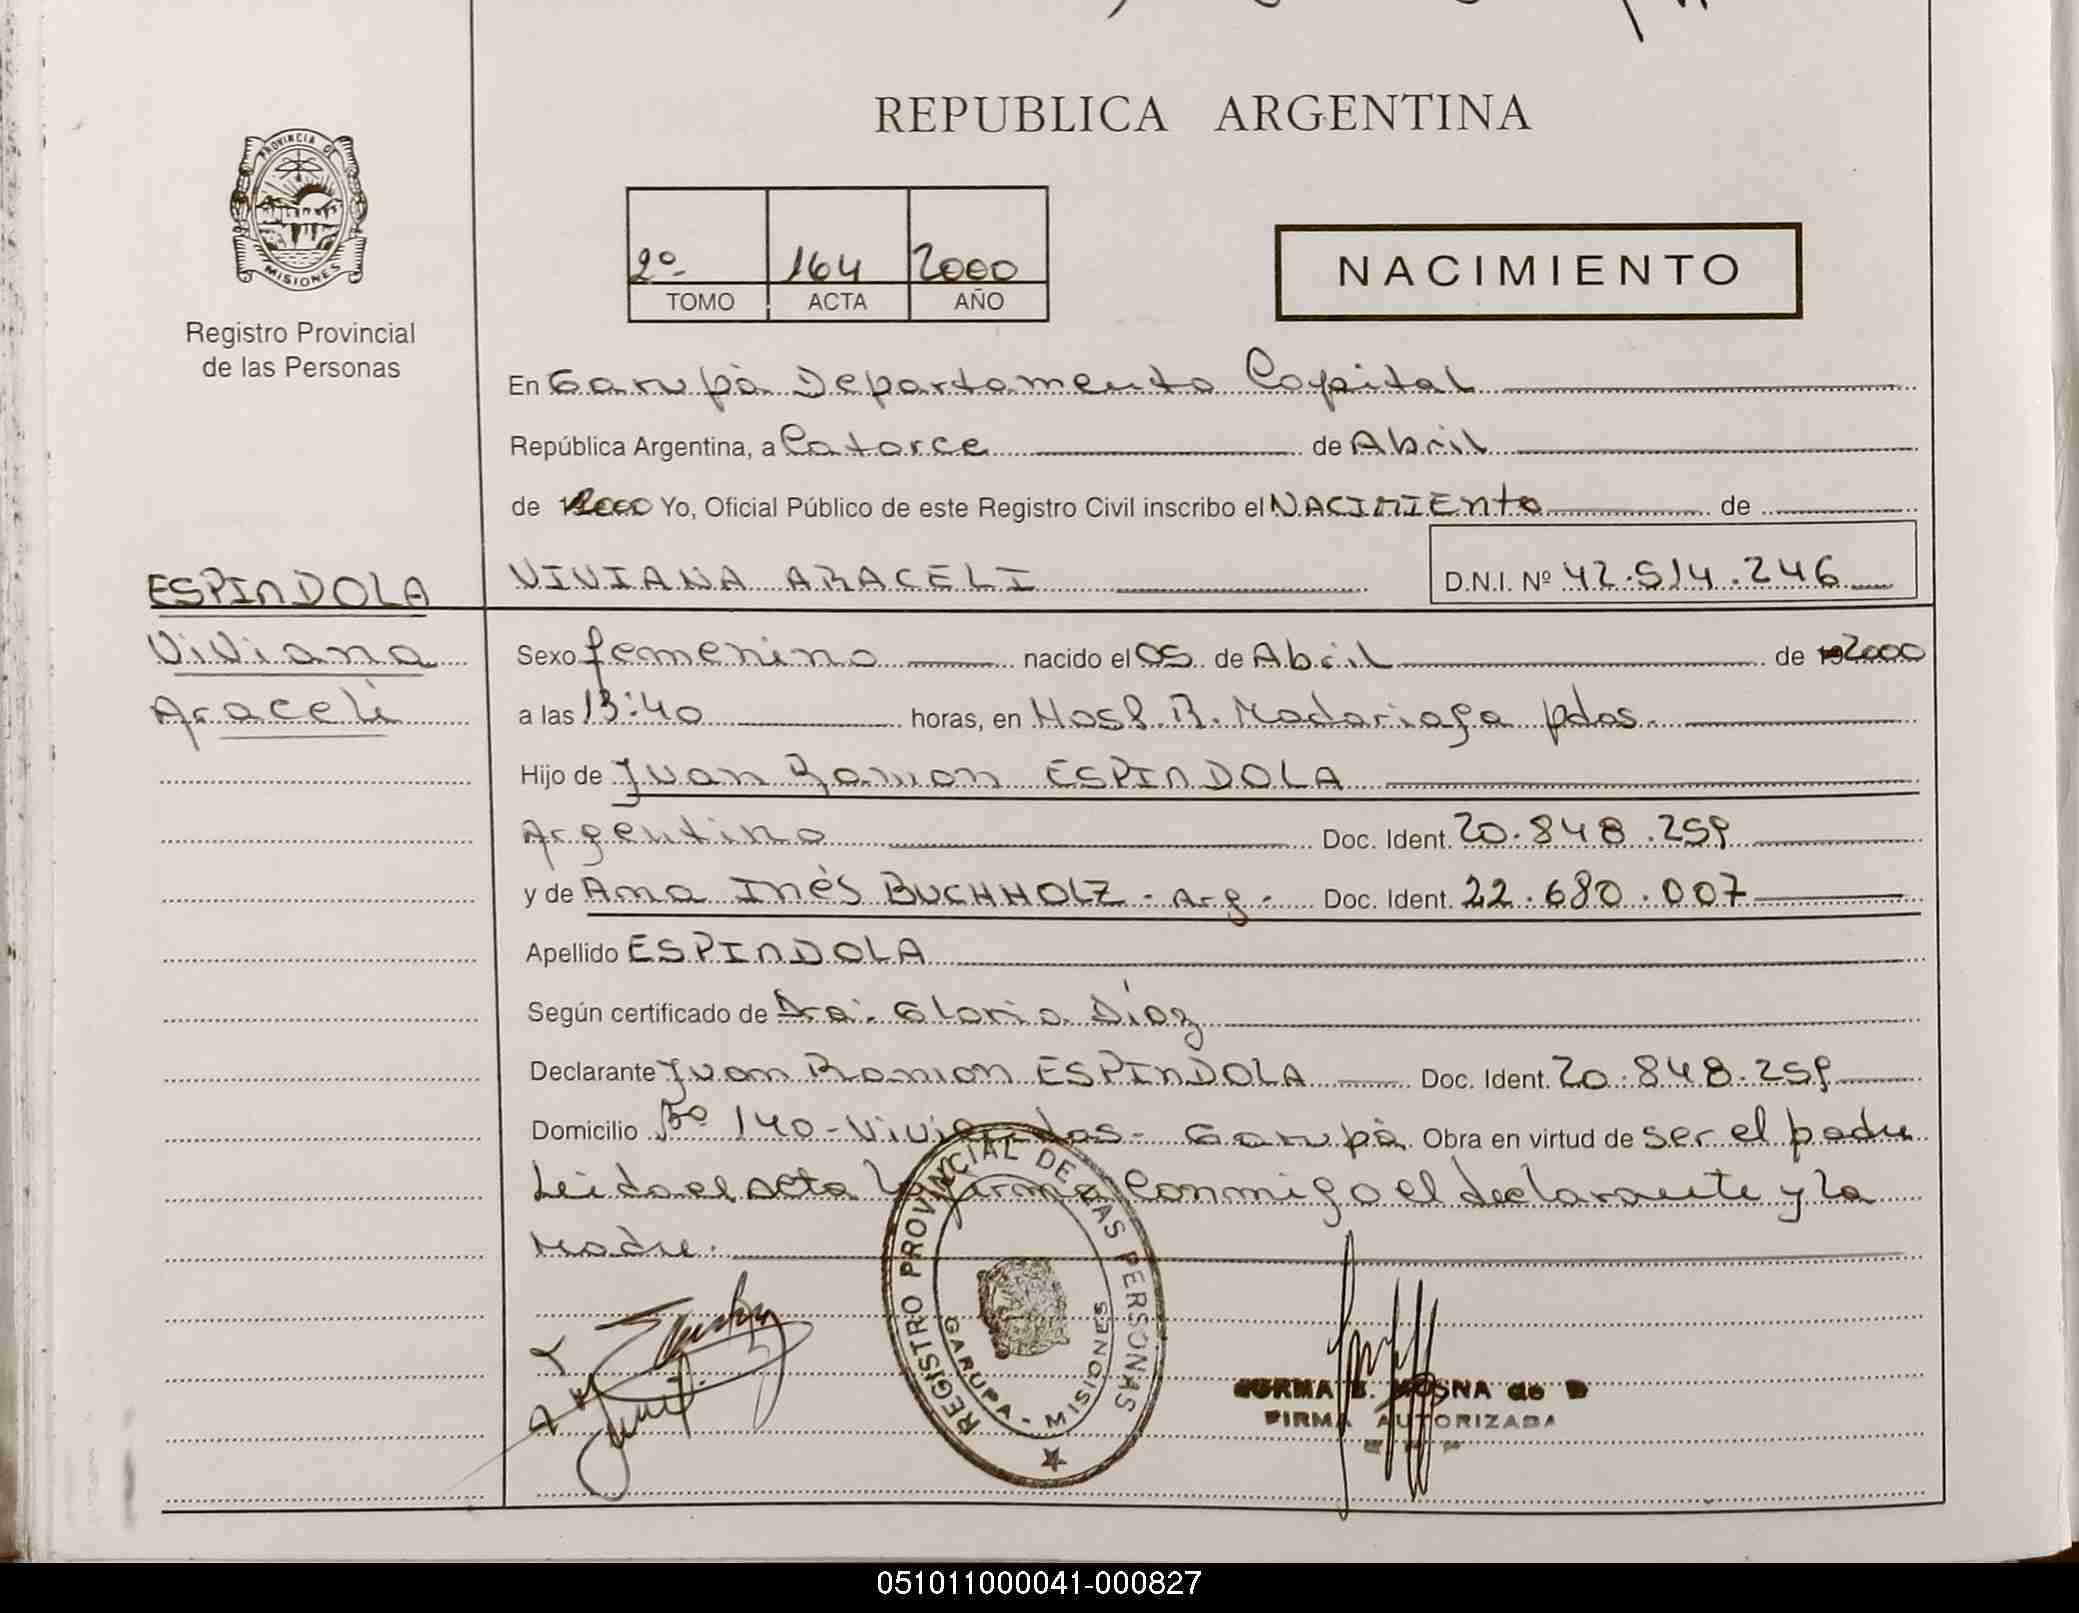 REPUBLICA ARGENTINA
PROVINCIA DE
MISIONES
Registro Provincial
de las Personas
2º 164 2000
TOMO ACTA AÑO
NACIMIENTO
En Garupà Departamento Capital
República Argentina, a Catorce de Abril
de 2000 Yo, Oficial Público de este Registro Civil inscribo el NACIMIENto de
VIVIANA ARACELI D.N.I. Nº 42.514.246
ESPINDOLA
Viviana
Araceli
Sexo femenino nacido el 05 de Abril de 192000
a las 13:40 horas, en Hosp. R. Madariaga pdas.
Hijo de Juan Ramon ESPINDOLA
Argentino Doc. Ident. 20.848.259
y de Ana Inés BUCHHOLZ - Arg - Doc. Ident. 22.680.007
Apellido ESPINDOLA
Según certificado de Dra. Gloria Díaz
Declarante Juan Ramon ESPINDOLA Doc. Ident. 20.848.259
Domicilio Bº 140 - Viviendas - Garupà Obra en virtud de ser el padre
Leida el acta la firma Conmigo el declarante y la
Madre.
REGISTRO PROVINCIAL DE LAS PERSONAS
GARUPA - MISIONES
MOSNA de
FIRMA AUTORIZADA
051011000041-000827